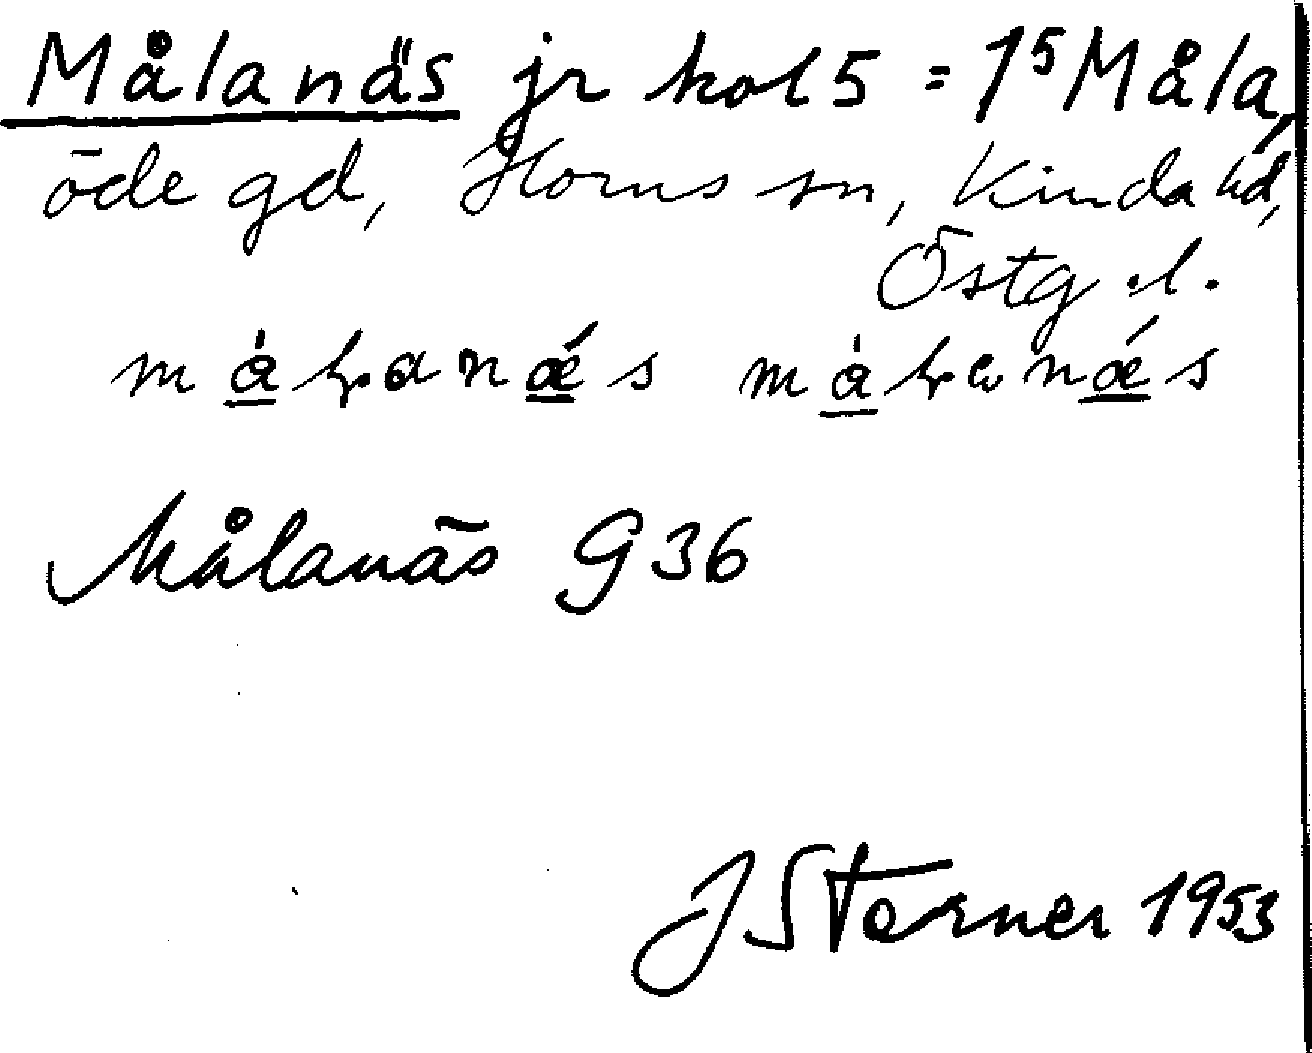 Målanäs jr kol 5 = 1⁵ Måla,
öde gd, Horns sn, Kinda hd,
Östg. l.
Målanäs G 36
J Sterner 1953